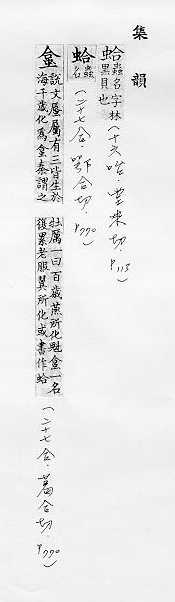 集韻
蛤 蟲名字林
黑貝也
(十六咍.堂來切.P113)
蛤 蟲
名
(二十七合.鄂合切.P770)
𧊧 說文蜃屬有三皆生於
海千歲化為𧊧秦謂之
牡厲一曰百歲燕所化魁𧊧一名
復累老服翼所化或書作蛤
(二十七合.葛合切.P770)